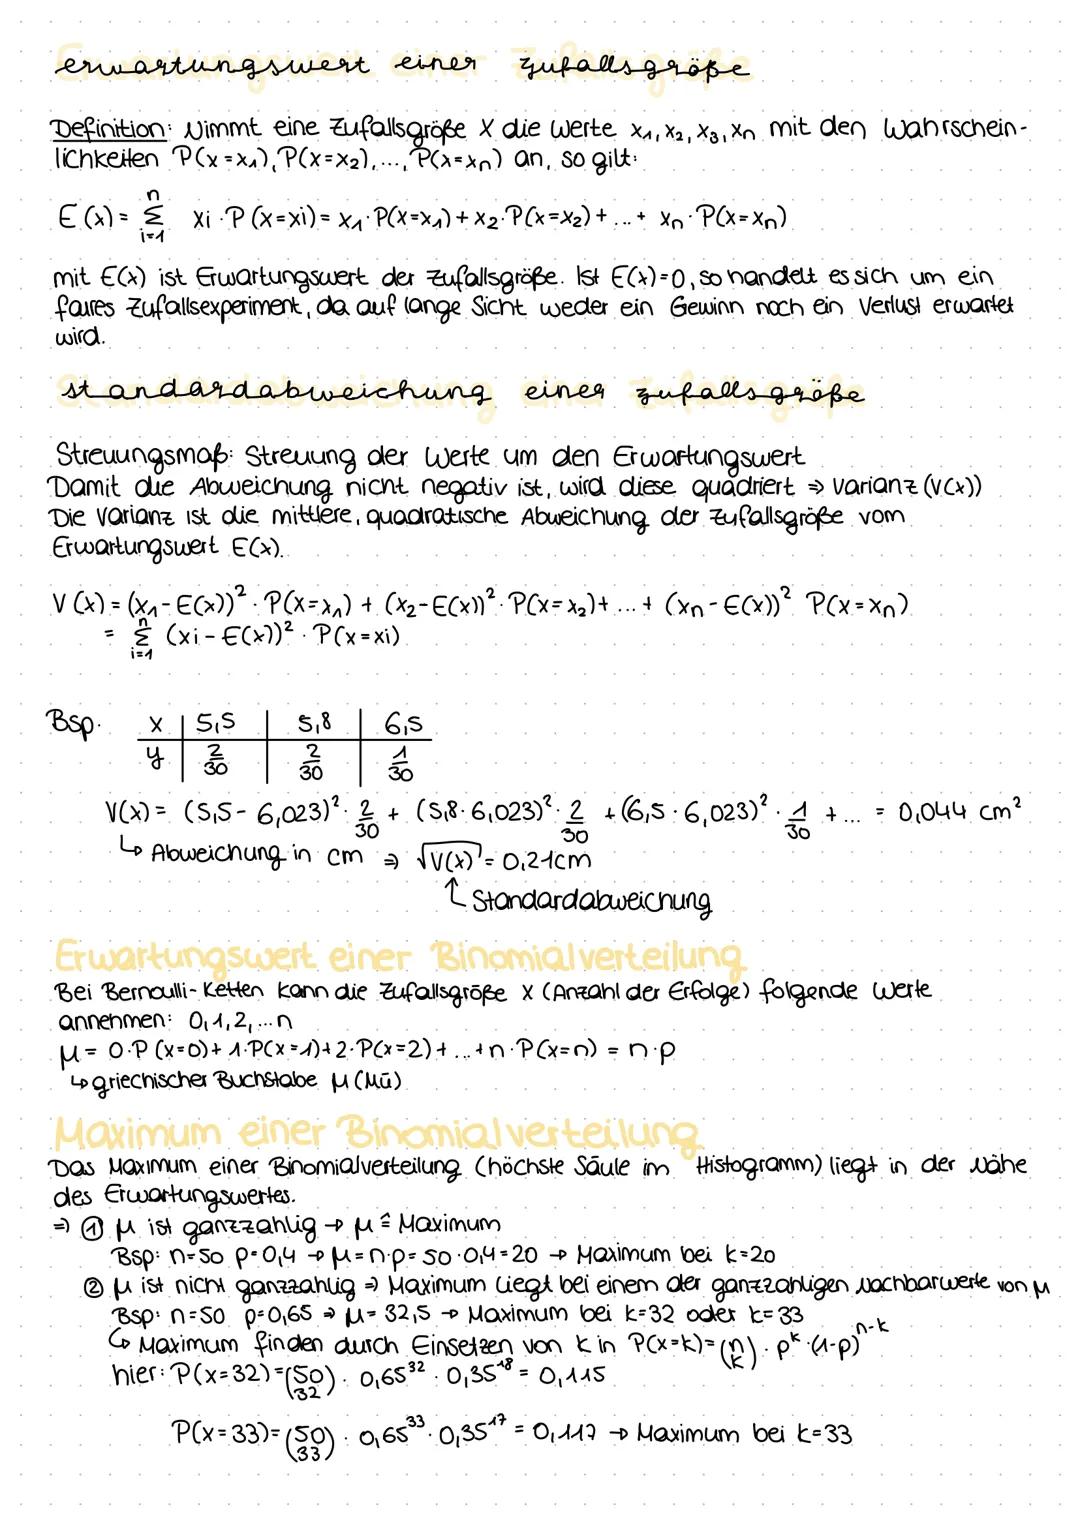 erwartungswert einer zufallsgröße
Definition: Nimmt eine Zufallsgröße X die Werte x₁, x₂, x₃, xn mit den Wahrschein-
lichkeiten P(x=x₁), P(x=x₂), ..., P(x=xn) an, so gilt:
E(x) = n Σ i=1 xi · P(x=xi) = x₁ · P(x=x₁) + x₂ · P(x=x₂) + ... + xn · P(x=xn)
mit E(x) ist Erwartungswert der Zufallsgröße. Ist E(x)=0, so handelt es sich um ein
faires Zufallsexperiment, da auf lange Sicht weder ein Gewinn noch ein Verlust erwartet
wird.
standardabweichung einer zufallsgröße
Streuungsmaß: Streuung der Werte um den Erwartungswert
Damit die Abweichung nicht negativ ist, wird diese quadriert ⇒ Varianz (V(x))
Die Varianz ist die mittlere, quadratische Abweichung der Zufallsgröße vom
Erwartungswert E(x).
V(x) = (x₁ - E(x))² · P(x=x₁) + (x₂ - E(x))² · P(x=x₂) + ... + (xn - E(x))² P(x=xn)
= n Σ i=1 (xi - E(x))² · P(x=xi)
Bsp. x | 5,5 | 5,8 | 6,5
y | 2/30 | 2/30 | 1/30
V(x) = (5,5 - 6,023)² · 2/30 + (5,8 · 6,023)² · 2/30 + (6,5 · 6,023)² · 1/30 + ... = 0,044 cm²
↳ Abweichung in cm ⇒ √V(x) = 0,21cm
↑ Standardabweichung
Erwartungswert einer Binomialverteilung
Bei Bernoulli-Ketten kann die Zufallsgröße X (Anzahl der Erfolge) folgende Werte
annehmen: 0,1,2, ... n
μ = 0·P(x=0) + 1·P(x=1) + 2·P(x=2) + ... + n·P(x=n) = n·p
↳ griechischer Buchstabe μ (Mü)
Maximum einer Binomialverteilung
Das Maximum einer Binomialverteilung (höchste Säule im Histogramm) liegt in der Nähe
des Erwartungswertes.
⇒ ① μ ist ganzzahlig → μ ≙ Maximum
Bsp: n=50 p=0,4 → μ=n·p=50·0,4=20 → Maximum bei k=20
② μ ist nicht ganzzahlig ⇒ Maximum liegt bei einem der ganzzahligen Nachbarwerte von μ
Bsp: n=50 p=0,65 ⇒ μ=32,5 → Maximum bei k=32 oder k=33
↳ Maximum finden durch Einsetzen von k in P(x=k) = (n k) · p^k · (1-p)^n-k
hier: P(x=32) = (50 32) · 0,65³² · 0,35¹⁸ = 0,115
P(x=33) = (50 33) · 0,65³³ · 0,35¹⁷ = 0,117 → Maximum bei k=33